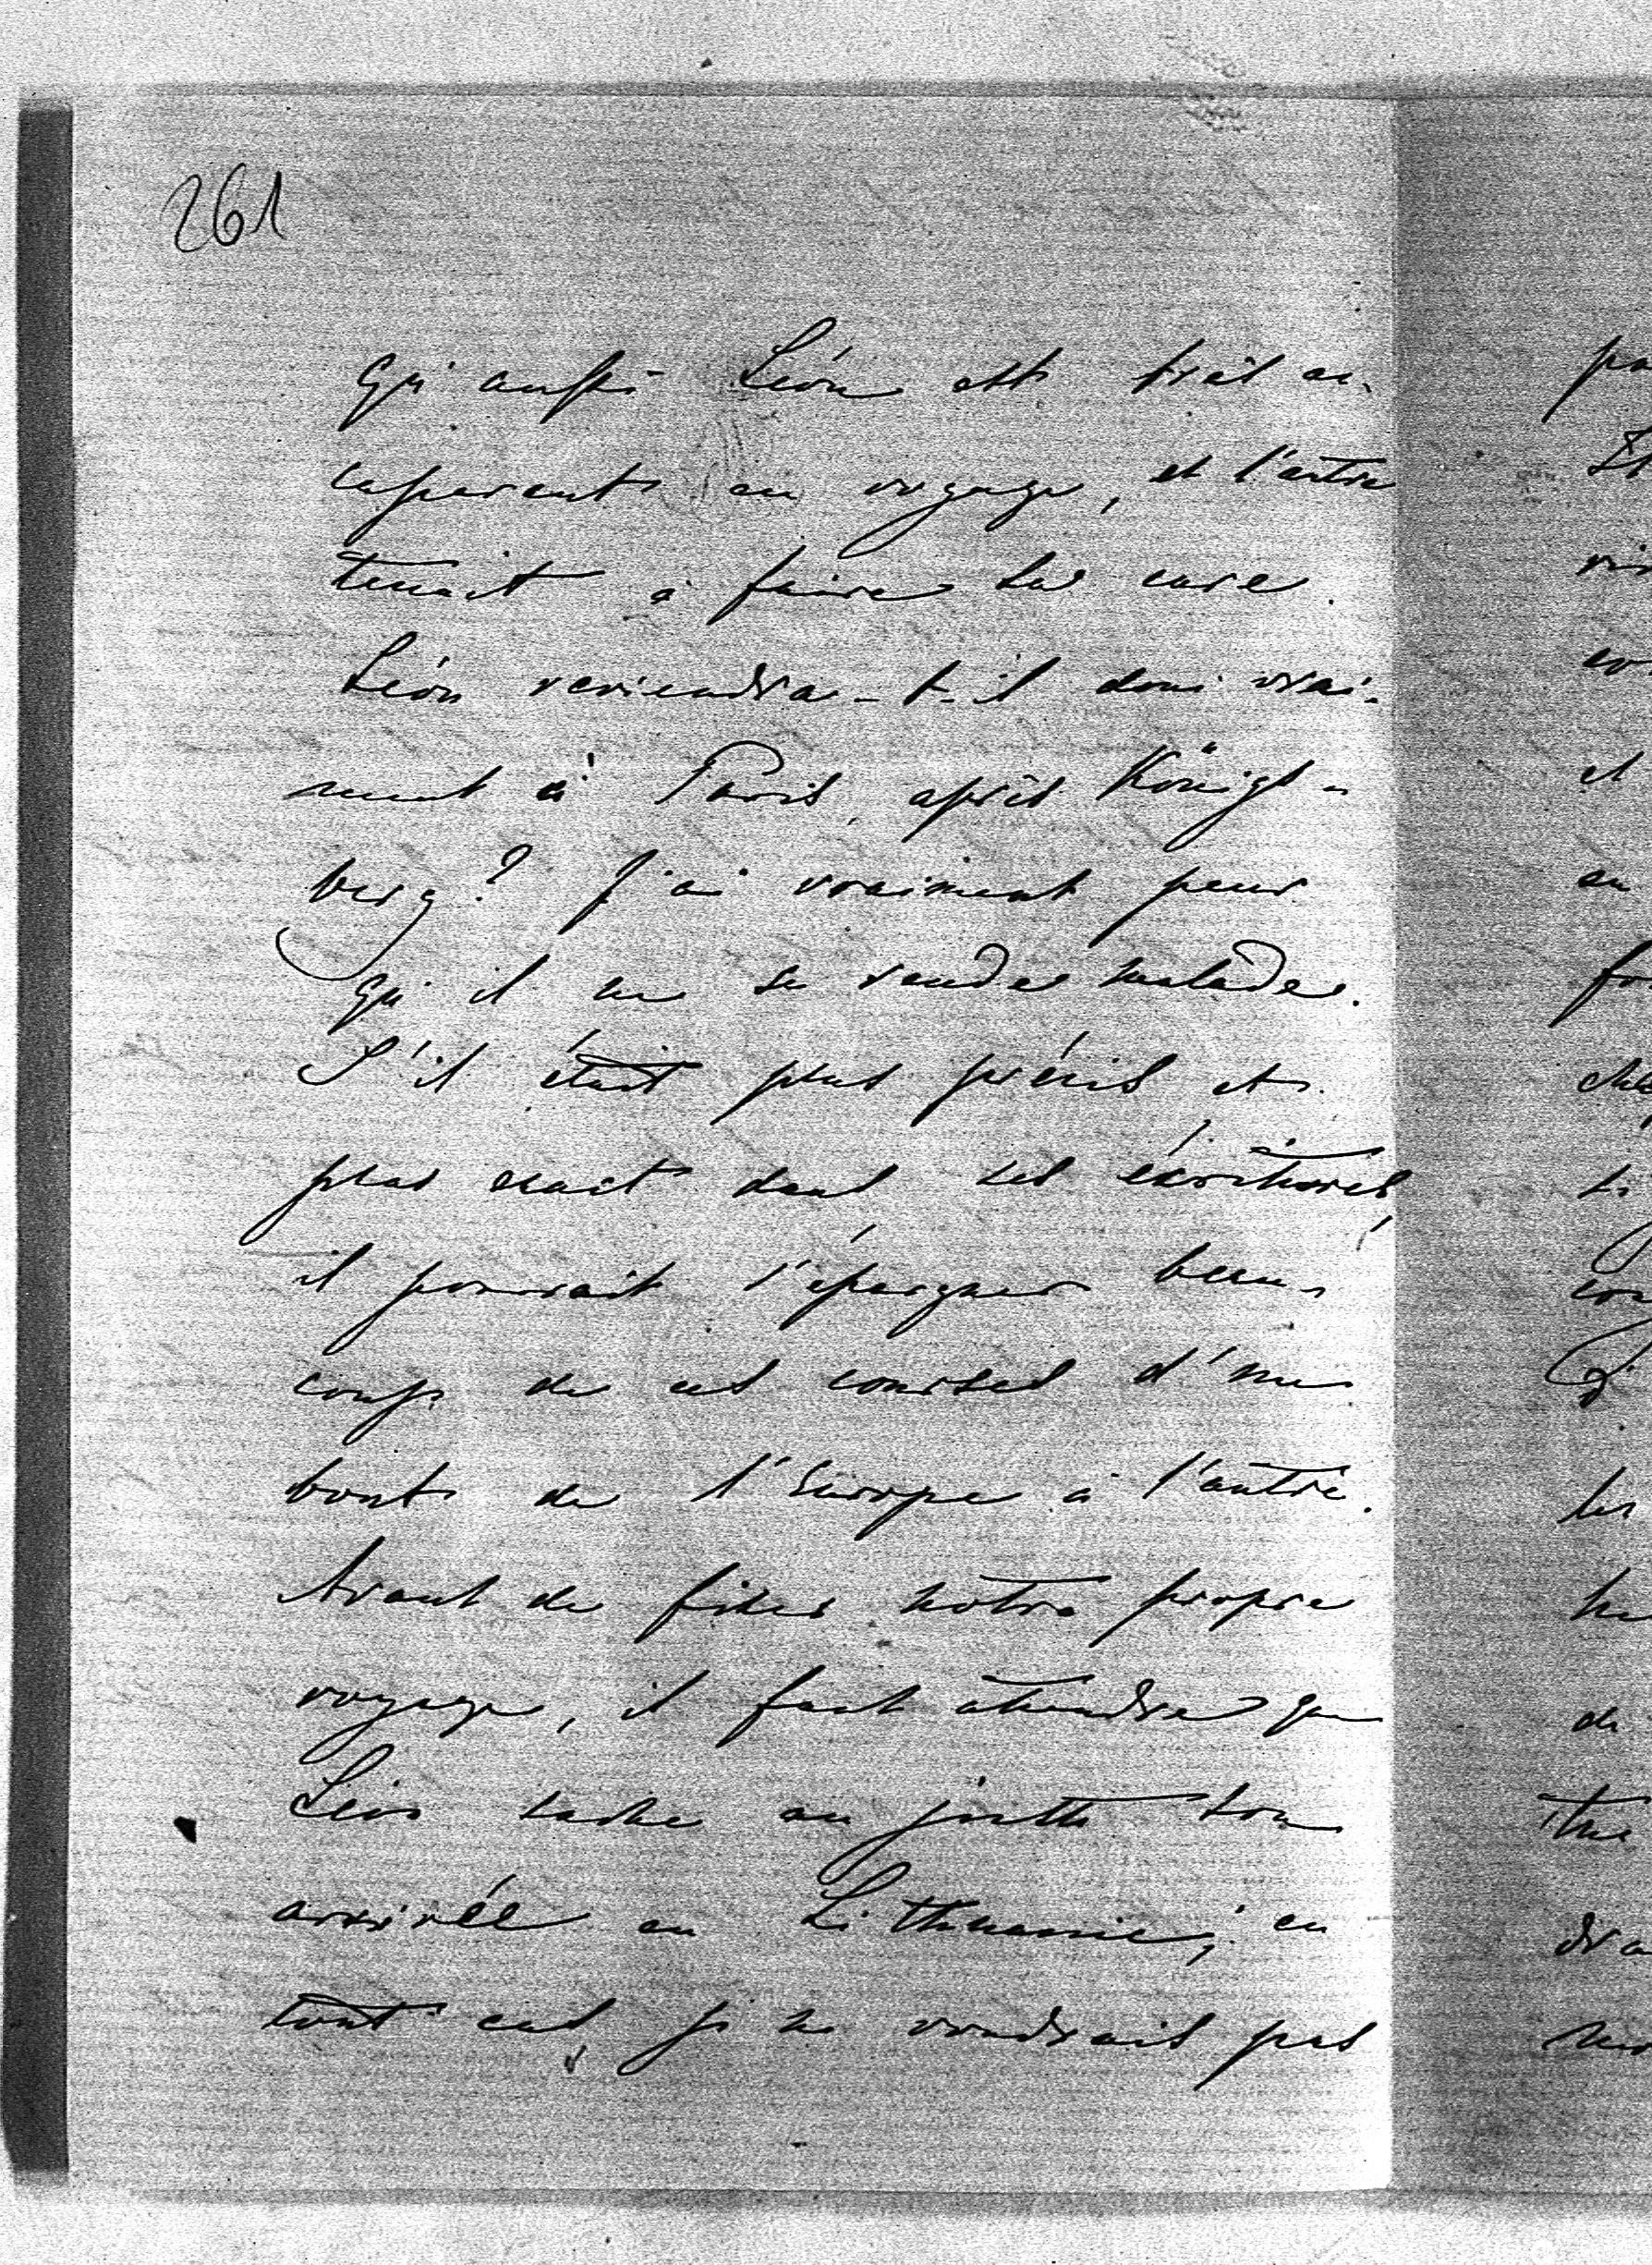 261
qu'aussi Léon est très ac-
caparant en voyage, et l'autre
tenait à faire sa cure.
Léon reviendra-t-il donc vrai-
ment à Paris, après Königs-
berg? J'ai vraiment peur
qu'il ne se rende malade.
S'il était plus précis et
plus exact dans ses écritures,
il pourrait s'épargner beau-
coup de ces courses d'un
bout de l'Europe à l'autre.
Avant de fixer notre propre
voyage, il faut attendre que
Léon sache au juste son
arrivée en Lithuanie; en
tout cas, je ne voudrais pas